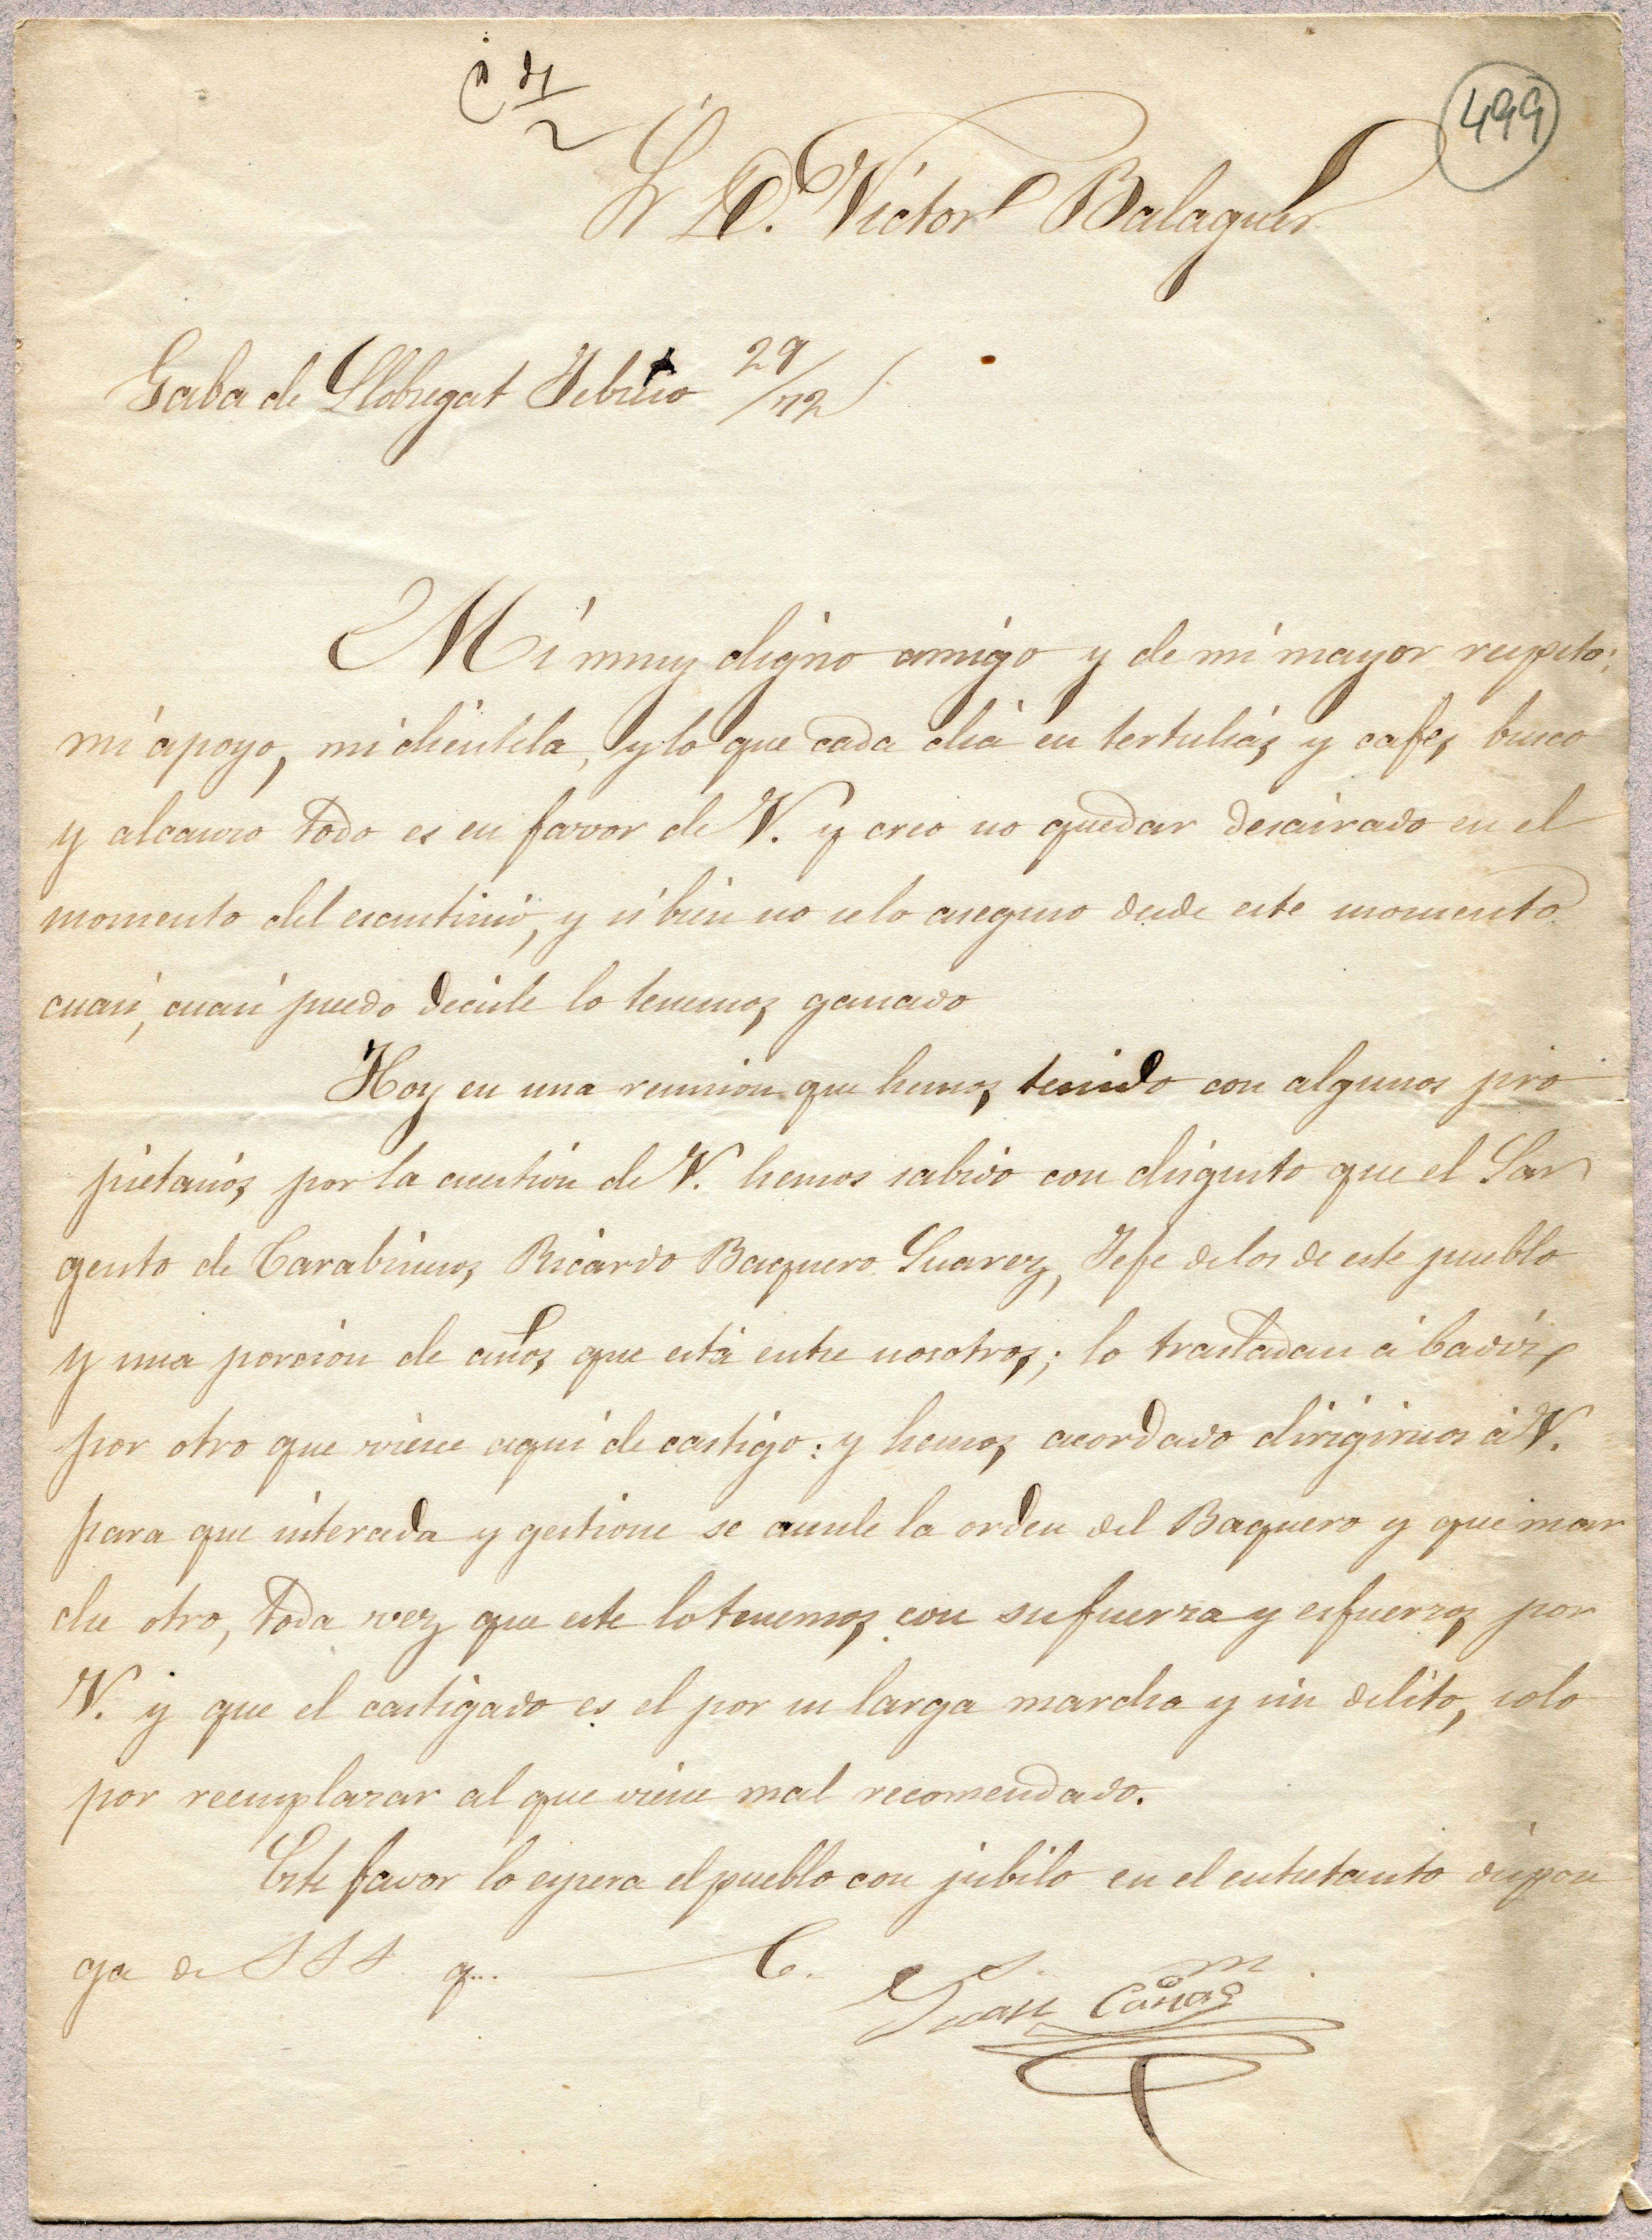 499
Sr D. Victor Balaguer
Gaba de Llobregat Febrero 29/72
Mi muy digno amigo y de mi mayor respeto:
mi apoyo, mi clientela, y lo que cada dia en tertulias y cafes busco
y alcanzo todo es en favor de V. y creo no quedar desairado en el
momento del escrutinio, y si bien no se lo aseguro desde este momento
cuasi, cuasi puedo decirle lo tenemos ganado
Hoy en una reunion que hemos tenido con algunos pro
pietarios por la cuestion de V. hemos sabido con disgusto que el Sar
gento de Carabineros Ricardo Baquero Suarez, Jefe de los de este pueblo
y una porcion de años que está entre nosotros; lo trasladan á Cadiz
por otro que viene aqui de castigo: y hemos acordado dirigirnos á V.
para que interceda y gestione se anule la orden del Baquero y que mar
che otro, toda vez que este lo tenemos con su fuerza y esfuerzos por
V. y que el castigado es el por su larga marcha y sin delito, solo
por reemplazar al que viene mal recomendado.
Este favor lo espera el pueblo con jubilo en el entretanto dispon
ga de SSS q... C.
Juan Cañas